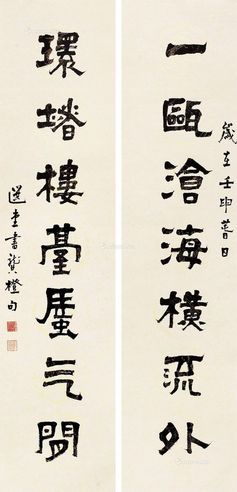 一甌滄海橫流外
歲在壬申春日
環堵樓臺蜃气間
選堂書龔橙句